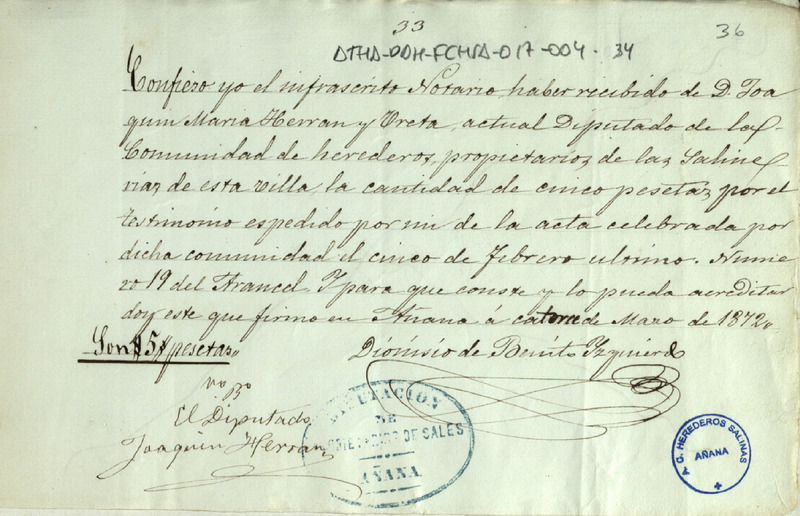 33
36
ATHA-DDH-FCHSA-017-004-34
Confiezo yo el infrascrito Notario, haber recibido de D. Joa
quin Maria Herran y Ureta, actual Diputado de la
Comunidad de herederos propietarios de las Saline
rias de esta villa la cantidad de cinco pesetas, por el
testimonio espedido por mi de la acta celebrada por
dicha comunidad el cinco de Febrero ultimo. Nume
ro 19 del Arancel. Y para que conste y lo pueda acreditar
doy este que firmo en Añana á catorce de Marzo de 1872.
Son 5 pesetas
Dionisio de Benito Yzquierdo
Vo Bo
El Diputado
Joaquin Herran
DIPUTACION
DE
DE SALES
AÑANA
C. HEREDEROS SALINAS
AÑANA